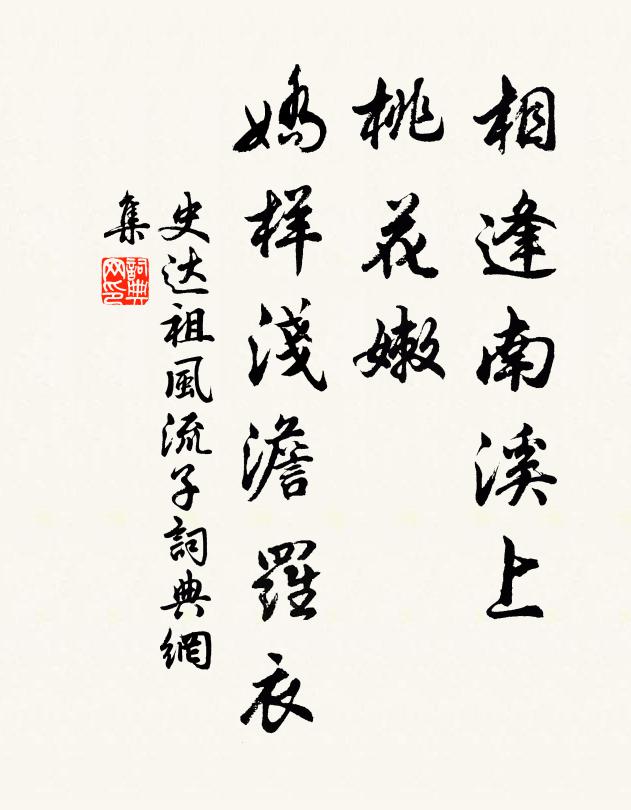 相逢南溪上
桃花嫩
嬌样淺澹羅衣
史达祖風流子詞典網
集
詞典
网印